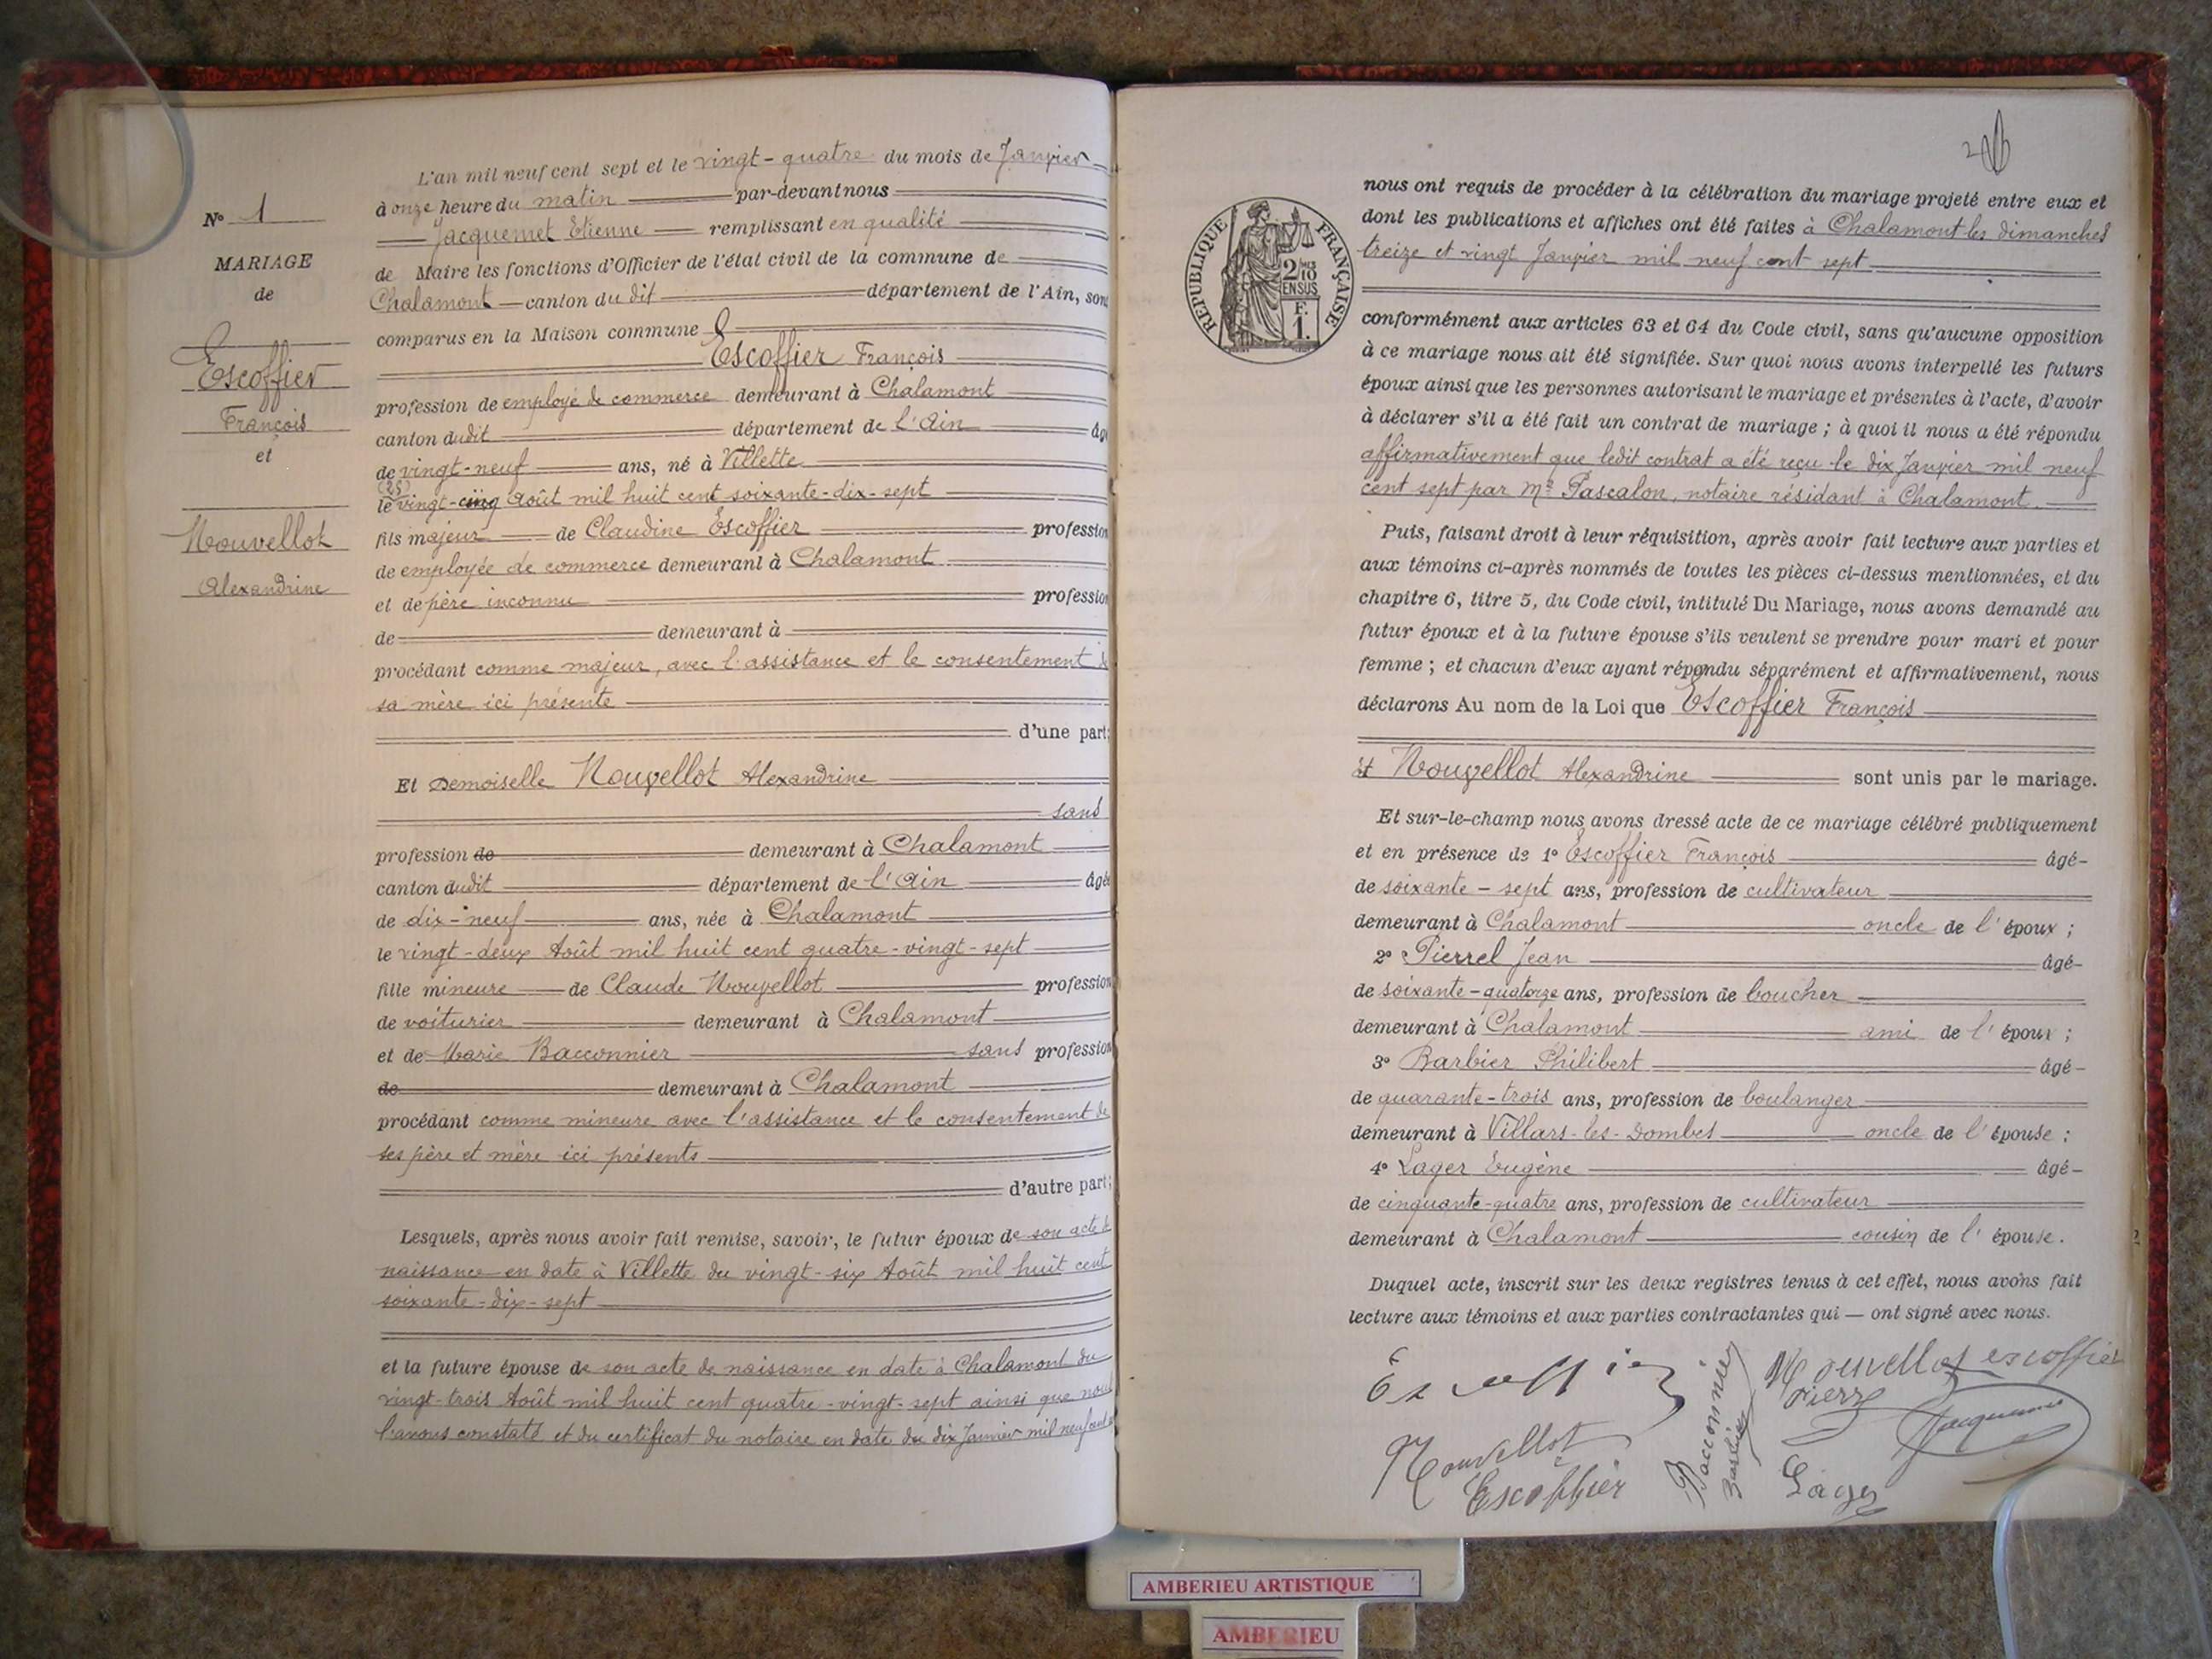 N° 1
MARIAGE
de
Escoffier
François
et
Nouvellot
Alexandrine
L'an mil neuf cent sept et le vingt-quatre du mois de Janvier
à onze heure du matin par-devant nous
Jacquemet Etienne remplissant en qualité
de Maire les fonctions d'Officier de l'état civil de la commune de
Chalamont canton du dit département de l'Ain, sont
comparus en la Maison commune
Escoffier François
profession de employé de commerce demeurant à Chalamont
canton dudit département de l'Ain âgé
de vingt-neuf ans, né à Villette
(25)
le vingt-cinq Août mil huit cent soixante-dix-sept
fils majeur de Claudine Escoffier profession
de employée de commerce demeurant à Chalamont
et de père inconnu profession
de demeurant à
procédant comme majeur, avec l'assistance et le consentement de
sa mère ici présente
d'une part;
Et Demoiselle Nouvellot Alexandrine
sans
profession de demeurant à Chalamont
canton dudit département de l'Ain âgée
de dix-neuf ans, née à Chalamont
le vingt-deux Août mil huit cent quatre-vingt-sept
fille mineure de Claude Nouvellot profession
de voiturier demeurant à Chalamont
et de Marie Bacconnier sans profession
de demeurant à Chalamont
procédant comme mineure avec l'assistance et le consentement de
ses père et mère ici présents
d'autre part;
Lesquels, après nous avoir fait remise, savoir, le futur époux de son acte de
naissance en date à Villette du vingt-six Août mil huit cent
soixante-dix-sept
et la future épouse de son acte de naissance en date à Chalamont du
vingt-trois Août mil huit cent quatre-vingt-sept ainsi que nous
l'avons constaté et du certificat du notaire en date du dix Janvier mil neuf cent
2
RÉPUBLIQUE FRANÇAISE
2/10
EN SUS
F.
1.
nous ont requis de procéder à la célébration du mariage projeté entre eux et
dont les publications et affiches ont été faites à Chalamont les dimanches
treize et vingt Janvier mil neuf cent sept
conformément aux articles 63 et 64 du Code civil, sans qu'aucune opposition
à ce mariage nous ait été signifiée. Sur quoi nous avons interpellé les futurs
époux ainsi que les personnes autorisant le mariage et présentes à l'acte, d'avoir
à déclarer s'il a été fait un contrat de mariage ; à quoi il nous a été répondu
affirmativement que ledit contrat a été reçu le dix Janvier mil neuf
cent sept par Me Pascalon, notaire résidant à Chalamont.
Puis, faisant droit à leur réquisition, après avoir fait lecture aux parties et
aux témoins ci-après nommés de toutes les pièces ci-dessus mentionnées, et du
chapitre 6, titre 5, du Code civil, intitulé Du Mariage, nous avons demandé au
futur époux et à la future épouse s'ils veulent se prendre pour mari et pour
femme ; et chacun d'eux ayant répondu séparément et affirmativement, nous
déclarons Au nom de la Loi que Escoffier François
et Nouvellot Alexandrine sont unis par le mariage.
Et sur-le-champ nous avons dressé acte de ce mariage célébré publiquement
et en présence de 1° Escoffier François âgé
de soixante-sept ans, profession de cultivateur
demeurant à Chalamont oncle de l'époux ;
2° Pierrel Jean âgé
de soixante-quatorze ans, profession de boucher
demeurant à Chalamont ami de l'époux ;
3° Barbier Philibert âgé
de quarante-trois ans, profession de boulanger
demeurant à Villars-les-Dombes oncle de l'épouse ;
4° Lager Eugène âgé
de cinquante-quatre ans, profession de cultivateur
demeurant à Chalamont cousin de l'épouse.
Duquel acte, inscrit sur les deux registres tenus à cet effet, nous avons fait
lecture aux témoins et aux parties contractantes qui — ont signé avec nous.
Escoffier
Nouvellot escoffier
Jacquemet
Nouvellot
Escoffier
Bacconnier
Barbier
Lager
AMBERIEU ARTISTIQUE
AMBERIEU